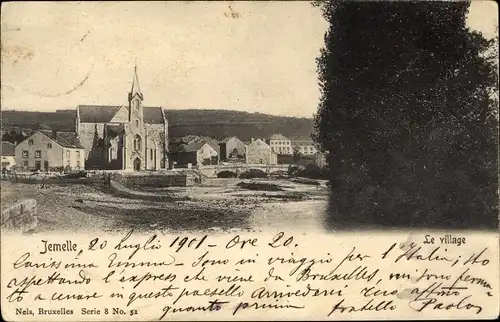 Jemelle, 20 luglio 1901 - Ore 20.
Le village
Carissima Emma - Sono in viaggio per l'Italia, sto
aspettando l'express che viene da Bruxelles, mi fermo
to a cenare in questo paesello Arrivederci
quanto prima tuo affmo fratello Paolo
Nels, Bruxelles Serie 8 No. 51